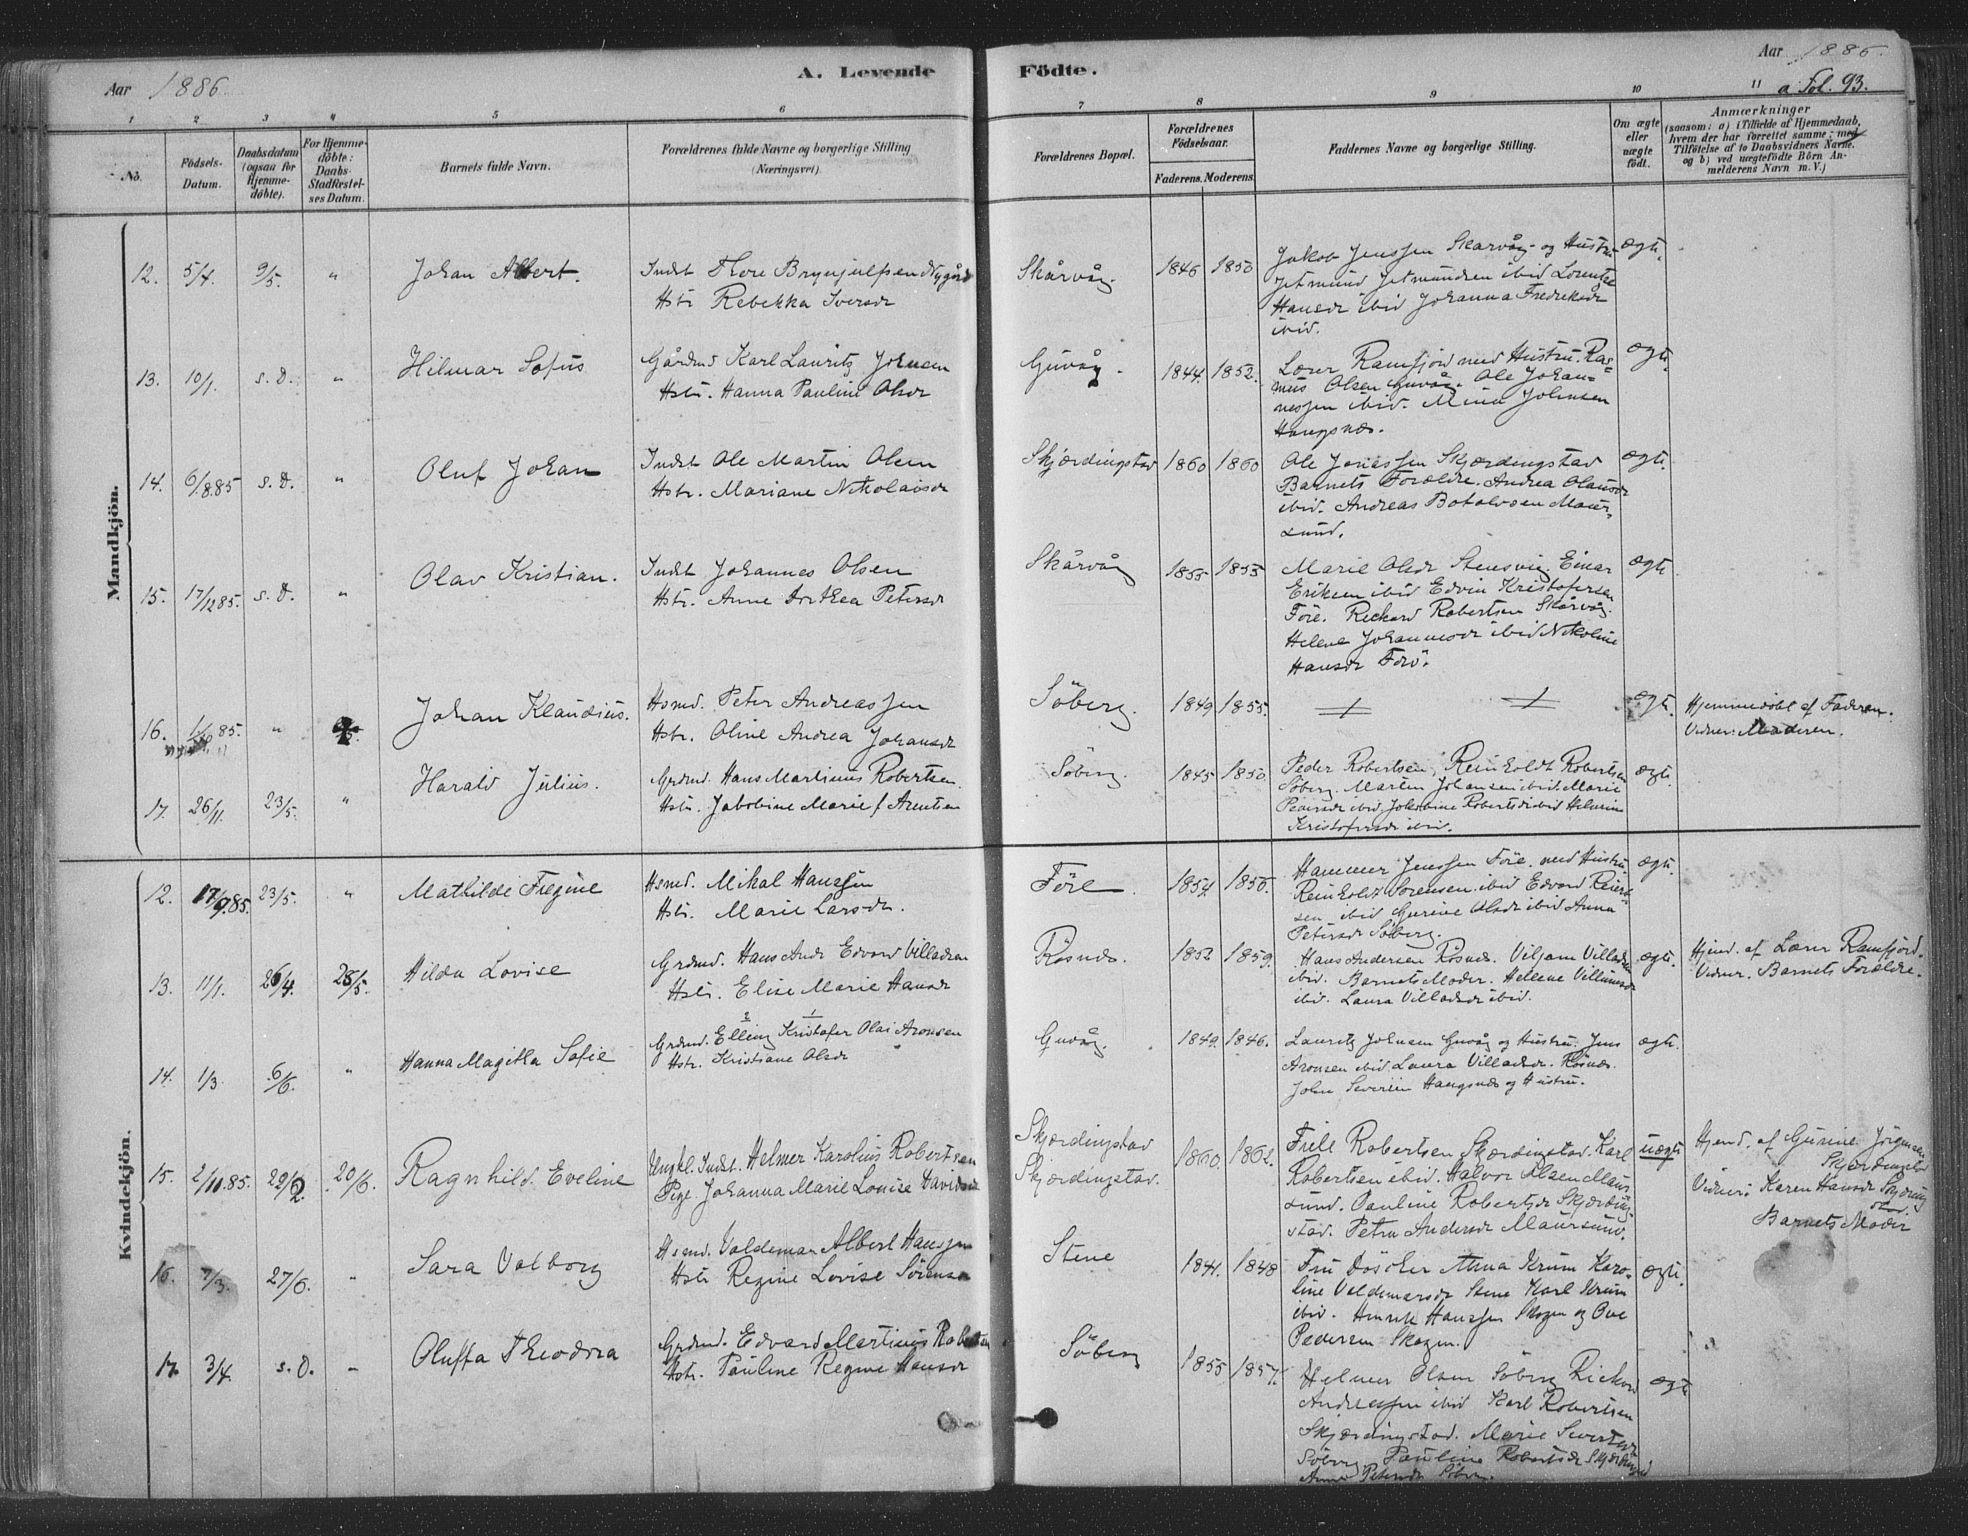 Aar 1886.
A. Levende
Födte.
Aar 1886.
a Fol. 93.
1 2 3 4 5 6 7 8 9 10 11
No.
Födsels-Datum.
Daabsdatum (ogsaa for Hjemme-döbte).
For Hjemme-döbte: Daabs-Stadfæstel-ses Datum.
Barnets fulde Navn.
Forældrenes fulde Navne og borgerlige Stilling (Næringsvei).
Forældrenes Bopæl.
Forældrenes Födselsaar.
Faderens. Moderens.
Faddernes Navne og borgerlige Stilling.
Om ægte eller uægte födt.
Anmærkninger
(saasom: a) i Tilfælde af Hjemmedaab, hvem der har forrettet samme; med Tilföielse af to Daabsvidners Navne. og b) ved uægtefödte Börn An-melderens Navn m. V.)
Mandkjön.
12. 5/4. 9/5. " Johan Albert. Indst Thore Brynjulfsen Nygård
Hstr Rebekka Iversdr
Skårvåg. 1846 1850 Jakob Jenssen Skarvåg og Hustru
Jetmund Jetmundsen ibid Lorentze
Hansdr ibid Johanna Fredriksdr
ibid.
ægte.
13. 10/1. s. D. " Hilmar Sofus Gårdmd Karl Lauritz Johnsen
Hstr. Hanna Pauline Olsdr
Guvåg. 1844. 1852. Lærer Ramfjord med Hustru. Ras-
mus Olsen Guvåg. Ole Johan-
nessen ibid. Mina Johnsen
Haugsnæs.
ægte.
14. 6/8.85 s. D. " Oluf Johan Indst Ole Martin Olsen
Hstr. Mariane Nikolaisdr
Skjærdingstad 1860 1860 Ole Jonassen Skjærdingstad
Barnets Forældre. Andrea Olausdr
ibid. Andreas Botolvsen Maur-
sund.
ægte.
15. 17/12 85. s. D. " Olav Kristian. Indst Johannes Olsen
Hstr. Anne Dorthea Petersdr
Skårvåg 1855 1853 Marie Olsdr Stensvig. Einar
Eriksen ibid Edvin Kristofersen
Före. Rickard Robertsen Skårvåg.
Helene Johannesdr ibid Nikoline
Hansdr Före.
ægte
16. 1/10 85. " Johan Klaudius. Hsmd. Peter Andreassen
Hstr. Oline Andrea Johansdr
Söberg. 1849 1855. ægte. Hjemmedöbt af Faderen.
Vidner: Moderen.
17. 26/11. 23/5. " Harald Julius. Grdmd. Hans Martinus Robertsen
Hstr. Jakobine Marie f Arntsen
Söberg. 1845 1850. Peder Robertsen, Reinholdt Robertsen
Söberg. Martin Johansen ibid. Marie
Pedersdr ibid, Jakobine Robertsdr ibid Helmine
Kristofersdr ibid.
ægte.
Kvindekjön.
12. 17/9 85. 23/5. " Mathilde Fregine Hsmd. Mikal Hanssen
Hstr. Marie Larsdr.
Före. 1854 1856. Hammer Jenssen Före. med Hustru.
Reinholdt Sorensen ibid Edvard Reiert-
sen ibid Gurine Olsdr ibid Anna
Petersdr Söberg.
ægte.
13. 11/1. 26/4. 28/5. Hilda Lovise Grdmd. Hans Andr Edvard Villadsen
Hstr. Elise Marie Hansdr
Rösnæs. 1852 1859. Hans Andersen Rösnæs. Viljam Villadsen
ibid. Barnets Moder. Helene Villumsdr
ibid. Laura Villadsdr ibid.
ægte. Hjemd. af Lærer Ramfjord.
Vidner. Barnets Forældre.
14. 1/3. 6/6. " Hanna Magitha Sofie Grdmd. Elling Kristofer Olai Aronsen
Hstr. Kristiane Olsdr
Guvåg. 1849. 1846. Lauritz Johnsen Guvåg og Hustru. Jens
Aronsen ibid. Laura Villadsdr. Rösnæs.
John Severin Haugsnæs og Hustru.
ægte.
15. 2/10.85. 29/2 20/6. Ragnhild Eveline Ungkl. Indst. Helmer Karolius Robertsen
Pige. Johanna Marie Louise Davidsdr
Skjærdingstad
Skjærdingstad.
1860. 1862. Frill Robertsen Skjærdingstad. Karl
Robertsen ibid. Halvor Olsen Maur-
sund. Pauline Robertsdr Skjærding-
stad. Petra Andersdr Maursund.
uægte Hjemd. af Gurine Jörgensdr
Skjærdingstad
Vidner: Karen Hansdr Skjærding-
stad.
Barnets Moder
16. 7/3. 27/6. " Sara Valborg Hsmd. Valdemar Albert Hanssen
Hstr Regine Lovise Sörensdr
Stene 1841. 1848 Fru Döscher Anna Krum Karo-
line Valdemarsdr Stene Karl Krum
ibid. Henrik Hanssen Skogen og Ove
Pedersen Skogen.
ægte.
17. 3/4. s. D. " Oluffa Theodora Grdmd. Edvard Martinus Robertsen
Hstr. Pauline Regine Hansdr
Söberg 1855 1857. Helmer Olsen Söberg Rickard
Andreassen ibid Karl Robertsen
Skjærdingstad. Marie Sivertsdr
Söberg Pauline Robertsdr Skjærdingstad
Anna Petersdr Söberg.
ægte